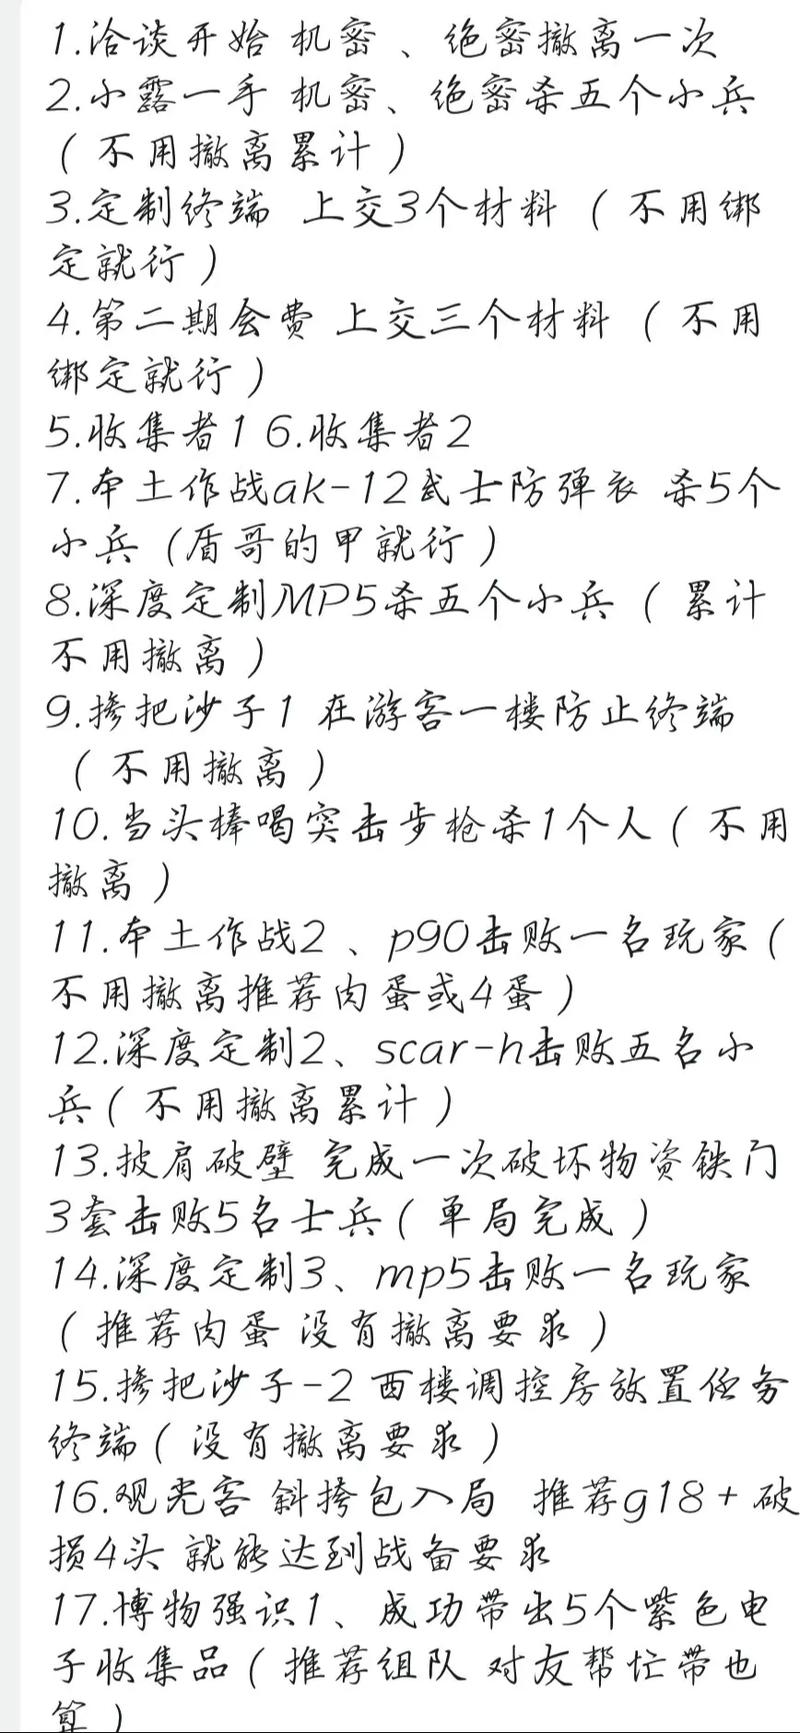 1.洽谈开始 机密 、绝密撤离一次
2.小露一手 机密、绝密杀五个小兵
（不用撤离累计）
3.定制终端 上交3个材料（不用绑
定就行）
4.第二期会费 上交三个材料（不用
绑定就行）
5.收集者1 6.收集者2
7.本土作战ak-12武士防弹衣 杀5个
小兵（盾哥的甲就行）
8.深度定制MP5杀五个小兵（累计
不用撤离）
9.掺把沙子1 在游客一楼防止终端
（不用撤离）
10.当头棒喝突击步枪杀1个人（不用
撤离）
11.本土作战2 、p90击败一名玩家（
不用撤离推荐肉蛋或4蛋）
12.深度定制2、scar-h击败五名小
兵（不用撤离累计）
13.披肩破壁 完成一次破坏物资铁门
3套击败5名士兵（单局完成）
14.深度定制3、mp5击败一名玩家
（推荐肉蛋 没有撤离要求）
15.掺把沙子-2 西楼调控房放置任务
终端（没有撤离要求）
16.观光客 斜挎包入局 推荐g18+破
损4头 就能达到战备要求
17.博物强识1、成功带出5个紫色电
子收集品（推荐组队 对友帮忙带也
算）